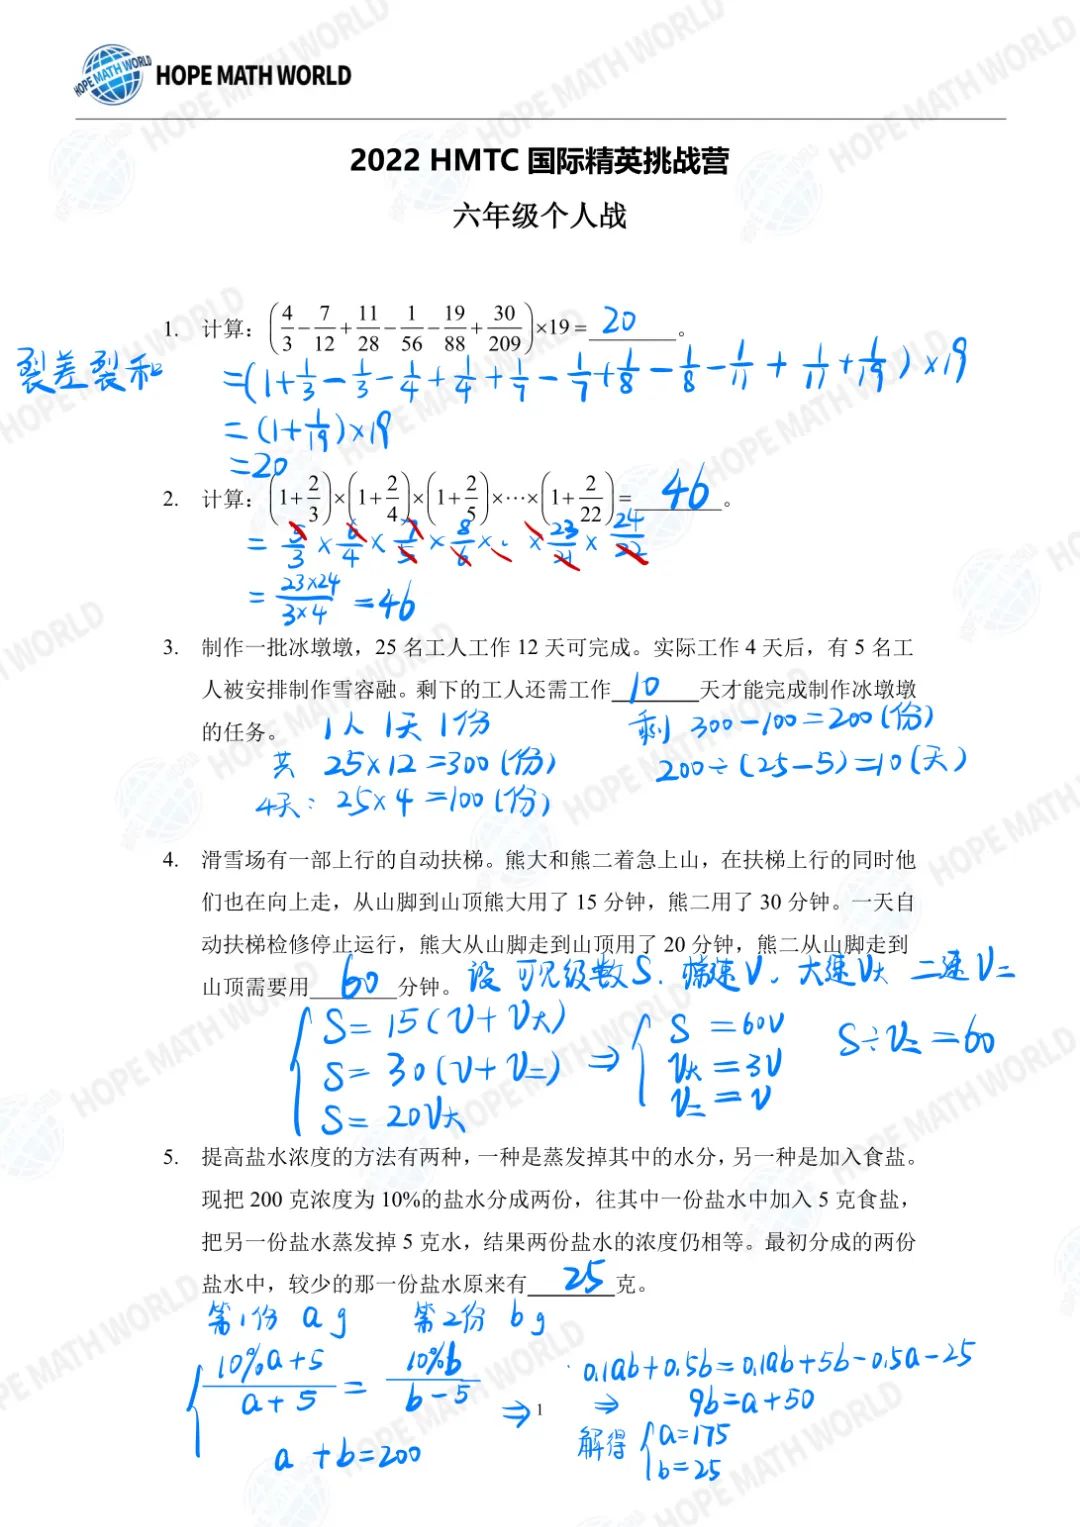 HOPE MATH WORLD
2022 HMTC 国际精英挑战营
六年级个人战
1. 计算：(4/3 - 7/12 + 11/28 - 1/56 - 19/88 + 30/209)×19= 20 。
裂差裂和
=(1+1/3-1/3-1/4+1/4+1/7-1/7+1/8-1/8-1/11+1/11+1/19)×19
=(1+1/19)×19
=20
2. 计算：(1+2/3)×(1+2/4)×(1+2/5)×⋯×(1+2/22)= 46 。
= 5/3 × 6/4 × 7/5 × 8/6 ×⋯× 23/21 × 24/22
= 23×24/3×4 =46
3. 制作一批冰墩墩，25 名工人工作 12 天可完成。实际工作 4 天后，有 5 名工
人被安排制作雪容融。剩下的工人还需工作 10 天才能完成制作冰墩墩
的任务。
1人 1天 1份
共 25×12=300(份)
4天：25×4=100(份)
剩 300-100=200(份)
200÷(25-5)=10(天)
4. 滑雪场有一部上行的自动扶梯。熊大和熊二着急上山，在扶梯上行的同时他
们也在向上走，从山脚到山顶熊大用了 15 分钟，熊二用了 30 分钟。一天自
动扶梯检修停止运行，熊大从山脚走到山顶用了 20 分钟，熊二从山脚走到
山顶需要用 60 分钟。
设 可见级数S. 梯速V, 大速V大 二速V二
S=15(V+V大)
S=30(V+V二)
S=20V大
⇒ S=60V
V大=3V
V二=V
S÷V二=60
5. 提高盐水浓度的方法有两种，一种是蒸发掉其中的水分，另一种是加入食盐。
现把 200 克浓度为 10%的盐水分成两份，往其中一份盐水中加入 5 克食盐，
把另一份盐水蒸发掉 5 克水，结果两份盐水的浓度仍相等。最初分成的两份
盐水中，较少的那一份盐水原来有 25 克。
第1份 a g 第2份 b g
10%a+5/a+5 = 10%b/b-5
a+b=200
⇒ 0.1ab+0.5b=0.1ab+5b-0.5a-25
⇒ 9b=a+50
解得 a=175
b=25
1